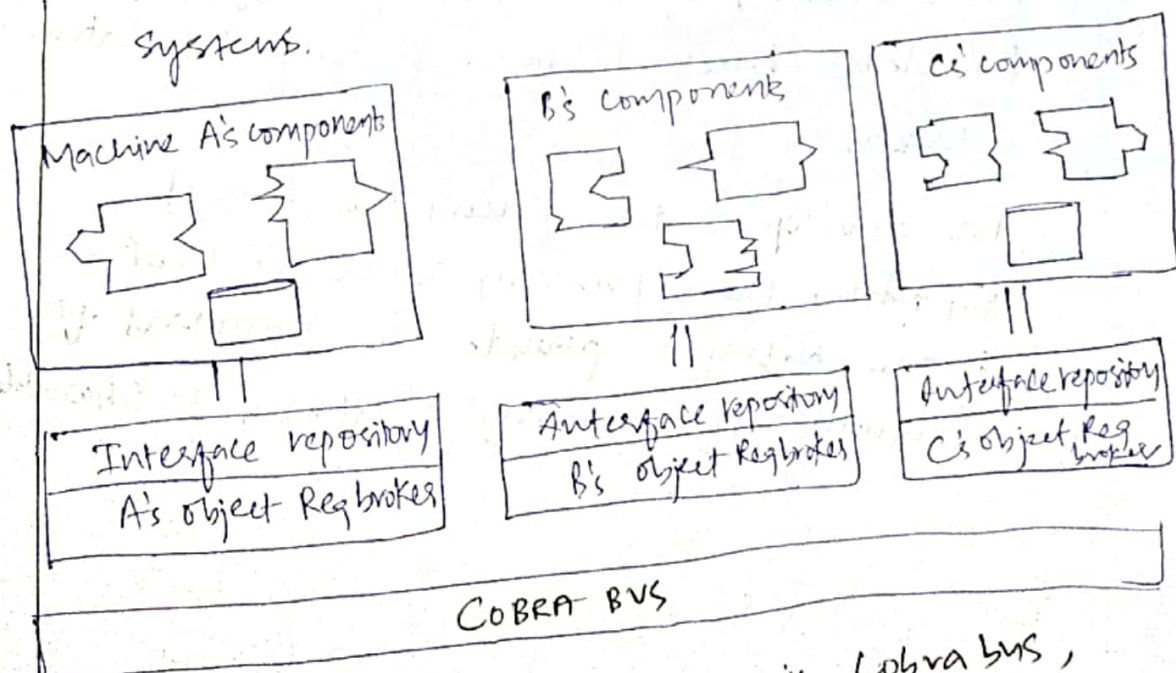 systems.
Machine A's components
B's components
C's components
Interface repository
A's object Reqbroker
Interface repository
B's object Reqbroker
Interface repository
C's object Req
broker
COBRA BUS
Cobra bus,